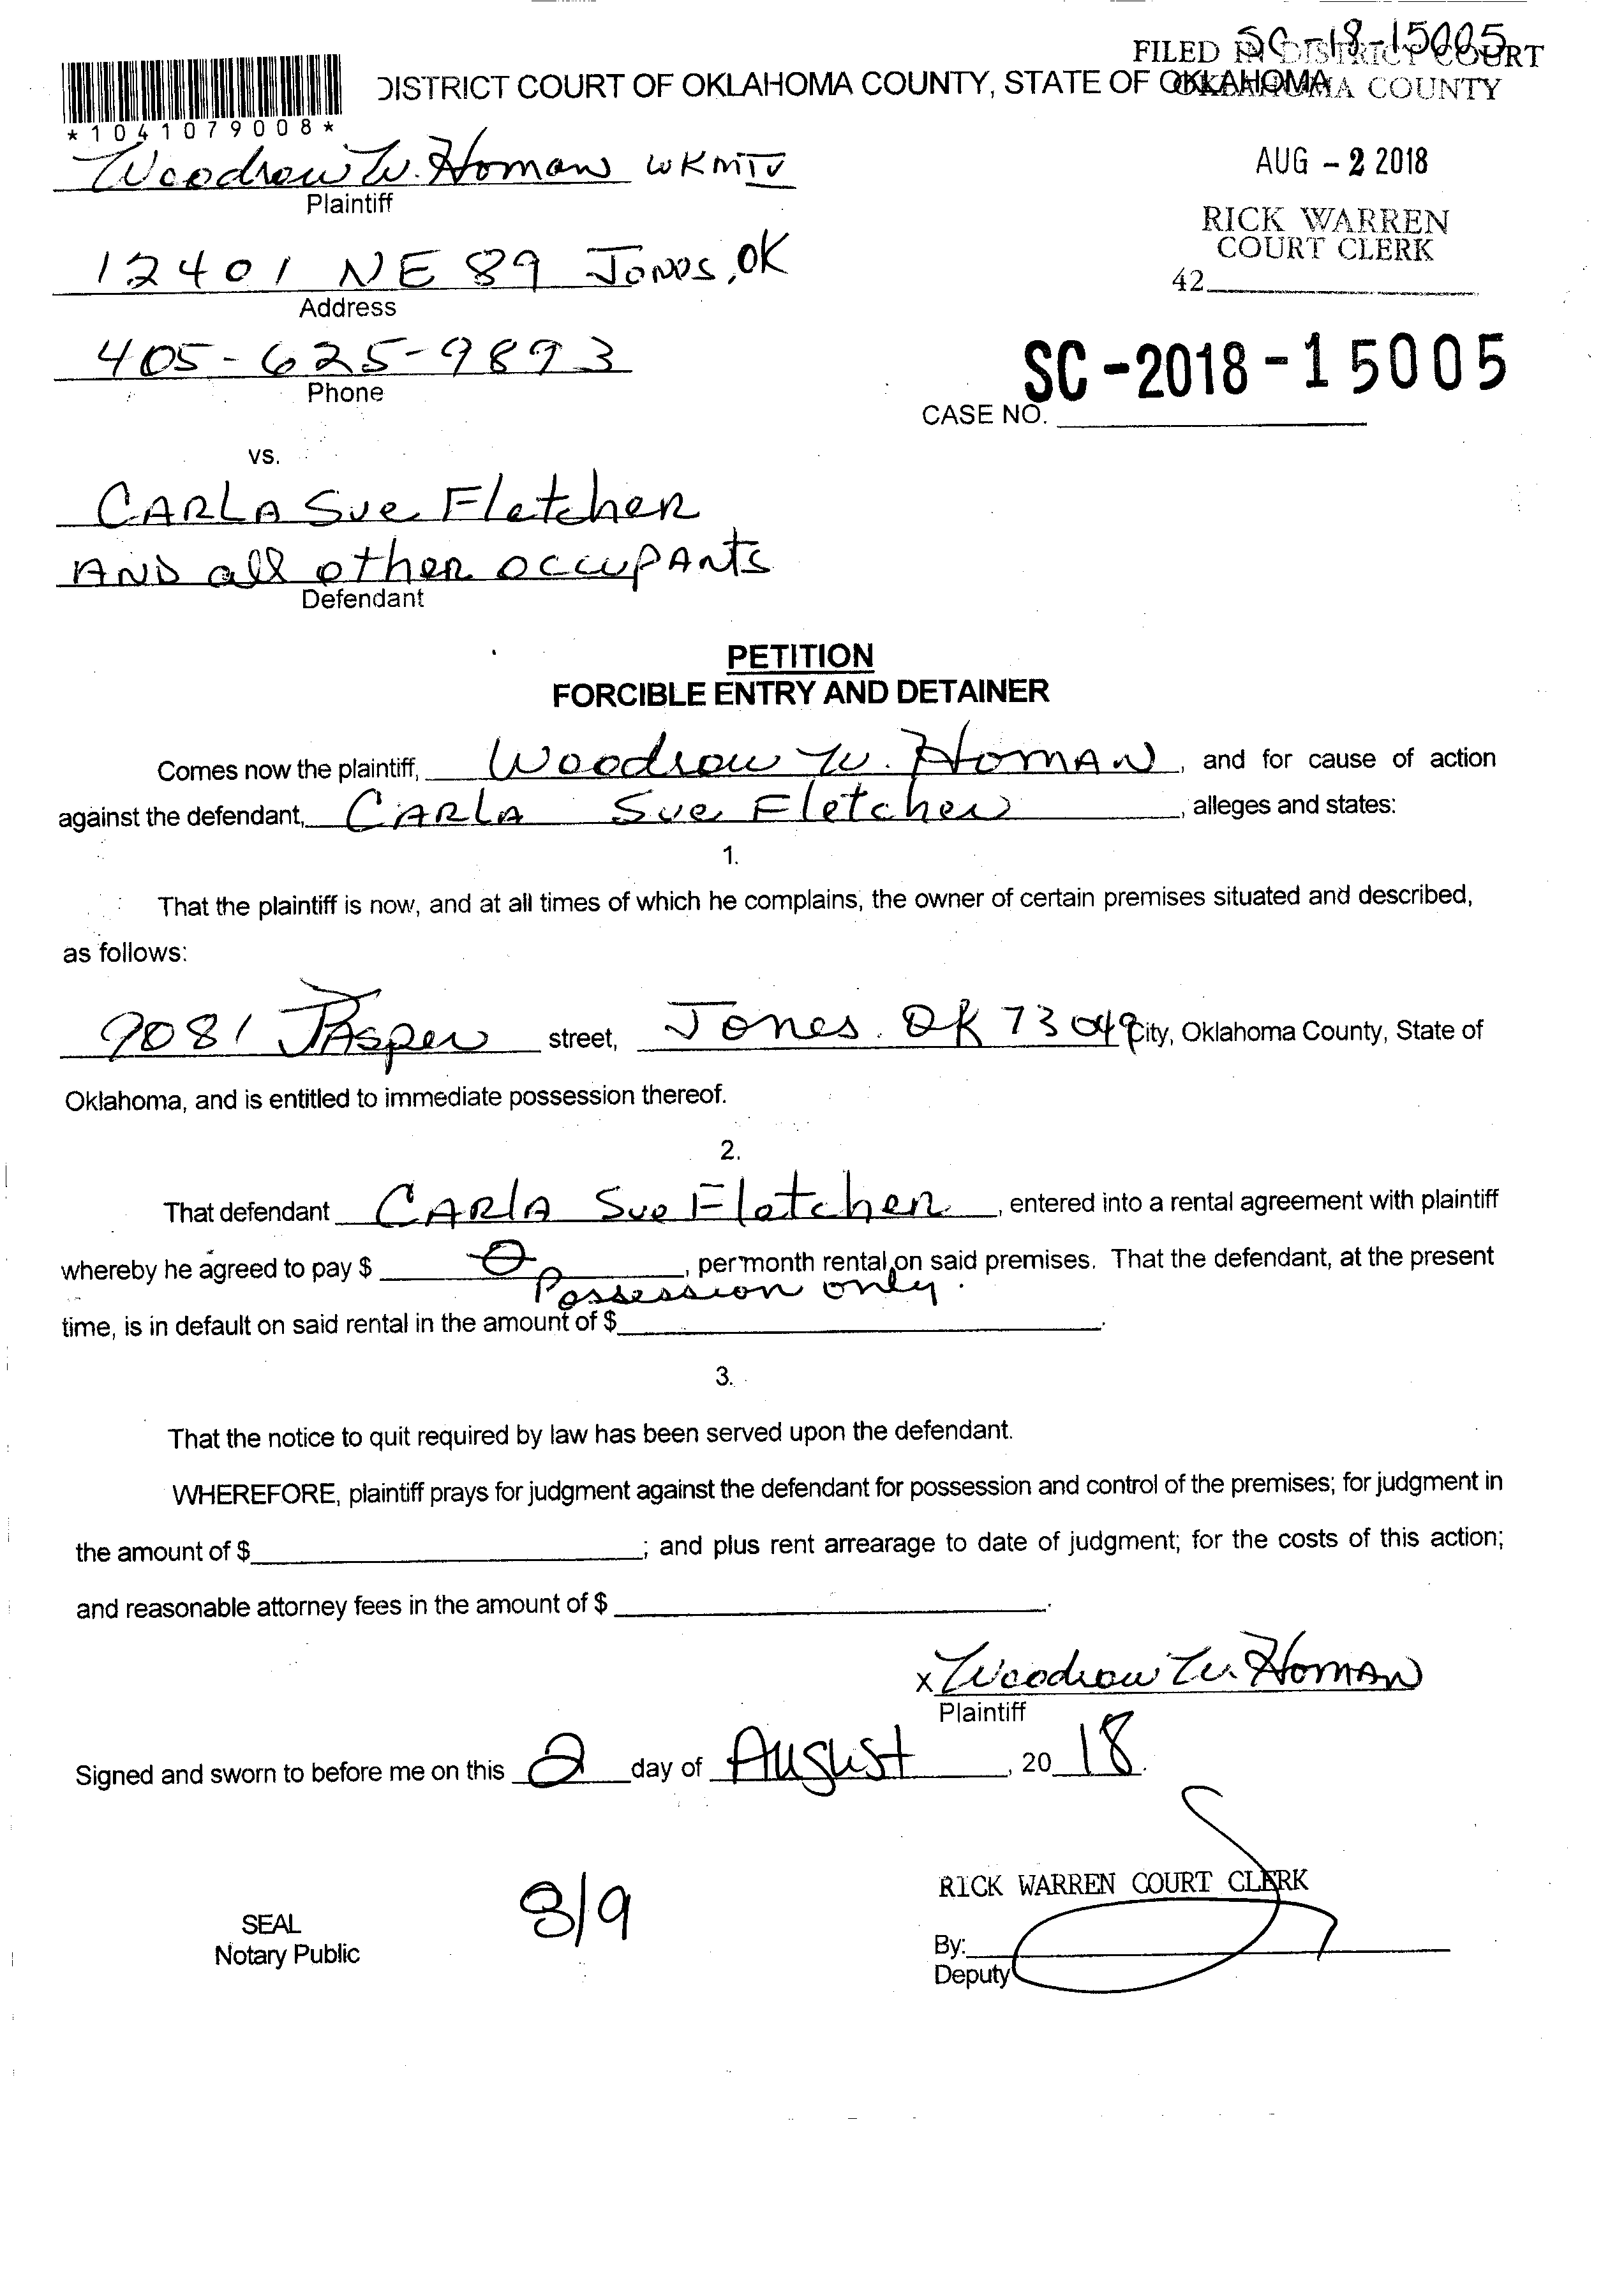 SC-18-15005
FILED IN DISTRICT COURT
OKLAHOMA COUNTY
DISTRICT COURT OF OKLAHOMA COUNTY, STATE OF OKLAHOMA
*1041079008*
AUG - 2 2018
RICK WARREN
COURT CLERK
42
Woodrow W. Homan WKMTV
Plaintiff
12401 NE 89 Jones, OK
Address
405-625-9893
Phone
SC-2018-15005
CASE NO.
vs.
CARLA Sue Fletcher
AND all other occupANts
Defendant
PETITION
FORCIBLE ENTRY AND DETAINER
Comes now the plaintiff, Woodrow W. HomAN, and for cause of action
against the defendant, CARLA Sue Fletcher, alleges and states:
1.
That the plaintiff is now, and at all times of which he complains, the owner of certain premises situated and described,
as follows:
9081 JAsper street, Jones. OK 73049 City, Oklahoma County, State of
Oklahoma, and is entitled to immediate possession thereof.
2.
That defendant CARlA Sue Fletcher, entered into a rental agreement with plaintiff
whereby he agreed to pay $ 0, per month rental on said premises. That the defendant, at the present
Possession only.
time, is in default on said rental in the amount of $ .
3.
That the notice to quit required by law has been served upon the defendant.
WHEREFORE, plaintiff prays for judgment against the defendant for possession and control of the premises; for judgment in
the amount of $ ; and plus rent arrearage to date of judgment; for the costs of this action;
and reasonable attorney fees in the amount of $ .
x Woodrow W. HomAN
Plaintiff
Signed and sworn to before me on this 2 day of August, 20 18.
RICK WARREN COURT CLERK
8/9
SEAL
Notary Public
By:
Deputy